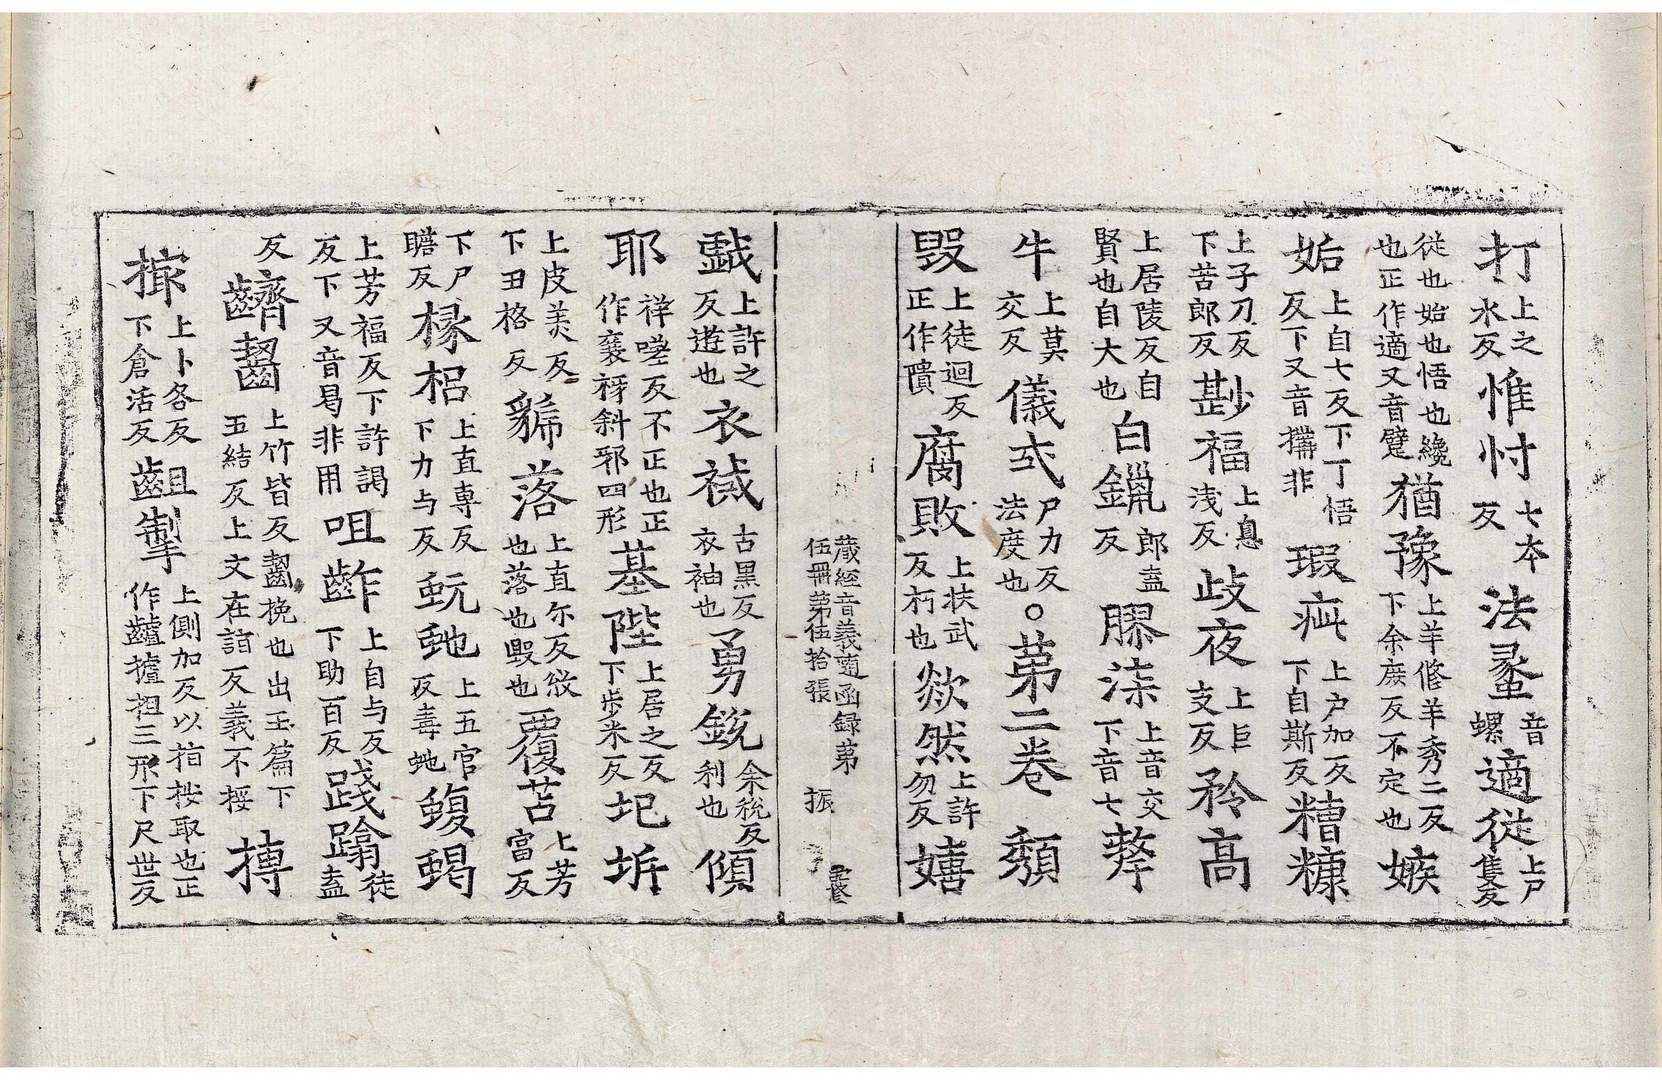 打上之水反惟忖七本反法蠡音螺適從上尸隻反
從也始也悟也纔也正作適又音躄猶豫上羊修羊秀二反下余庶反不定也嫉
妬上自七反下丁悟反下又音擣非瑕疵上户加反下自斯反糟糠
上子刀反下苦郎反尠福上息浅反歧夜上巨支反矜高
上居陵反自賢也自大也白鑞郎盍反膠柒上音交下音七犛
牛上莫交反儀式尸力反法度也○第二卷 頽
毀上徒迴反正作隤腐敗上扶武反朽也欻然上許勿反嬉
藏經音義隨函録第伍冊第伍拾張 振
戲上許之反遊也衣裓古黒反衣袖也勇銳余稅反利也傾
耶祥嗟反不正也正作衺衺斜邪四形基陛上居之反下步米反圮坼
上皮美反下丑格反褫落上直尒反紋也落也毀也覆苫上芳富反
下尸瞻反椽梠上直專反下力与反蚖虵上五官反毒虵蝮蝎
上芳福反下許謁反下又音曷非用咀齚上自与反下助百反踐蹹徒盍
反齩齧上竹皆反齧挽也出玉篇下五結反上文在詣反義不按摶
撮上卜各反下倉活反齟掣上側加反以指按取也正作齇摣担三形下尺世反